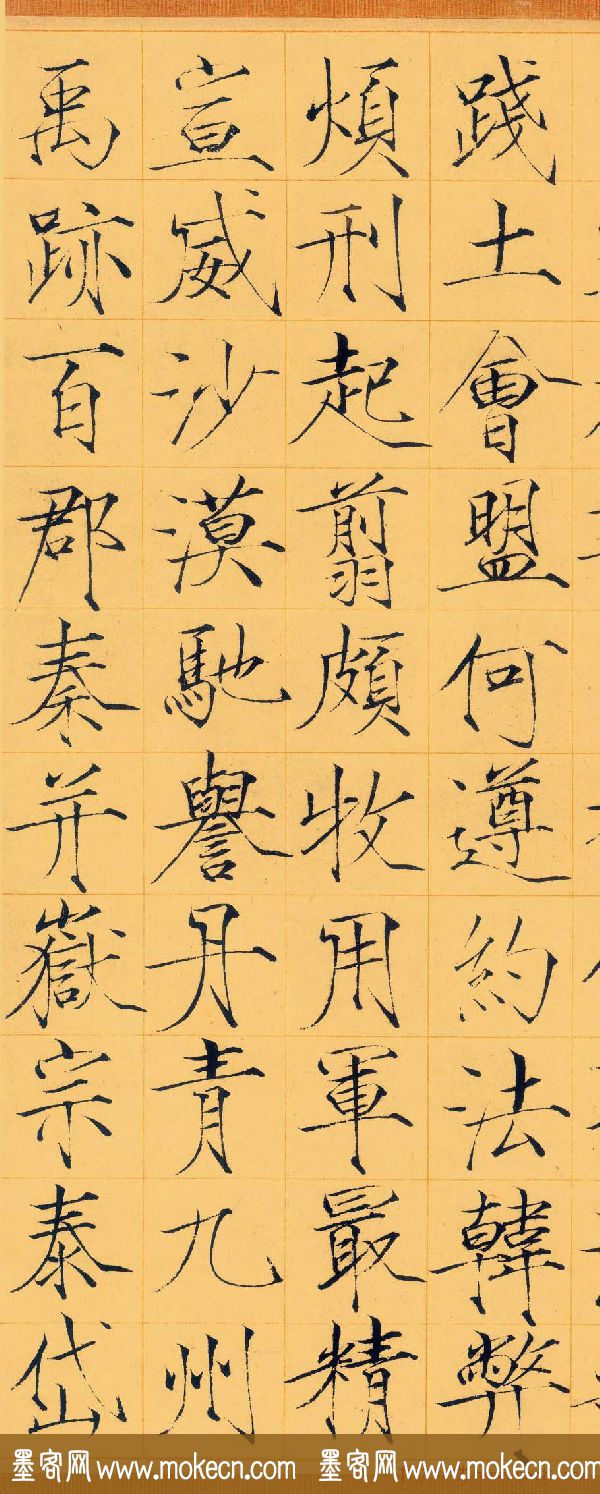 踐土會盟何遵約法韓弊
煩刑起翦頗牧用軍最精
宣威沙漠馳譽丹青九州
禹跡百郡秦并嶽宗泰岱
墨客网 www.mokecn.com 墨客网 www.mokecn.com